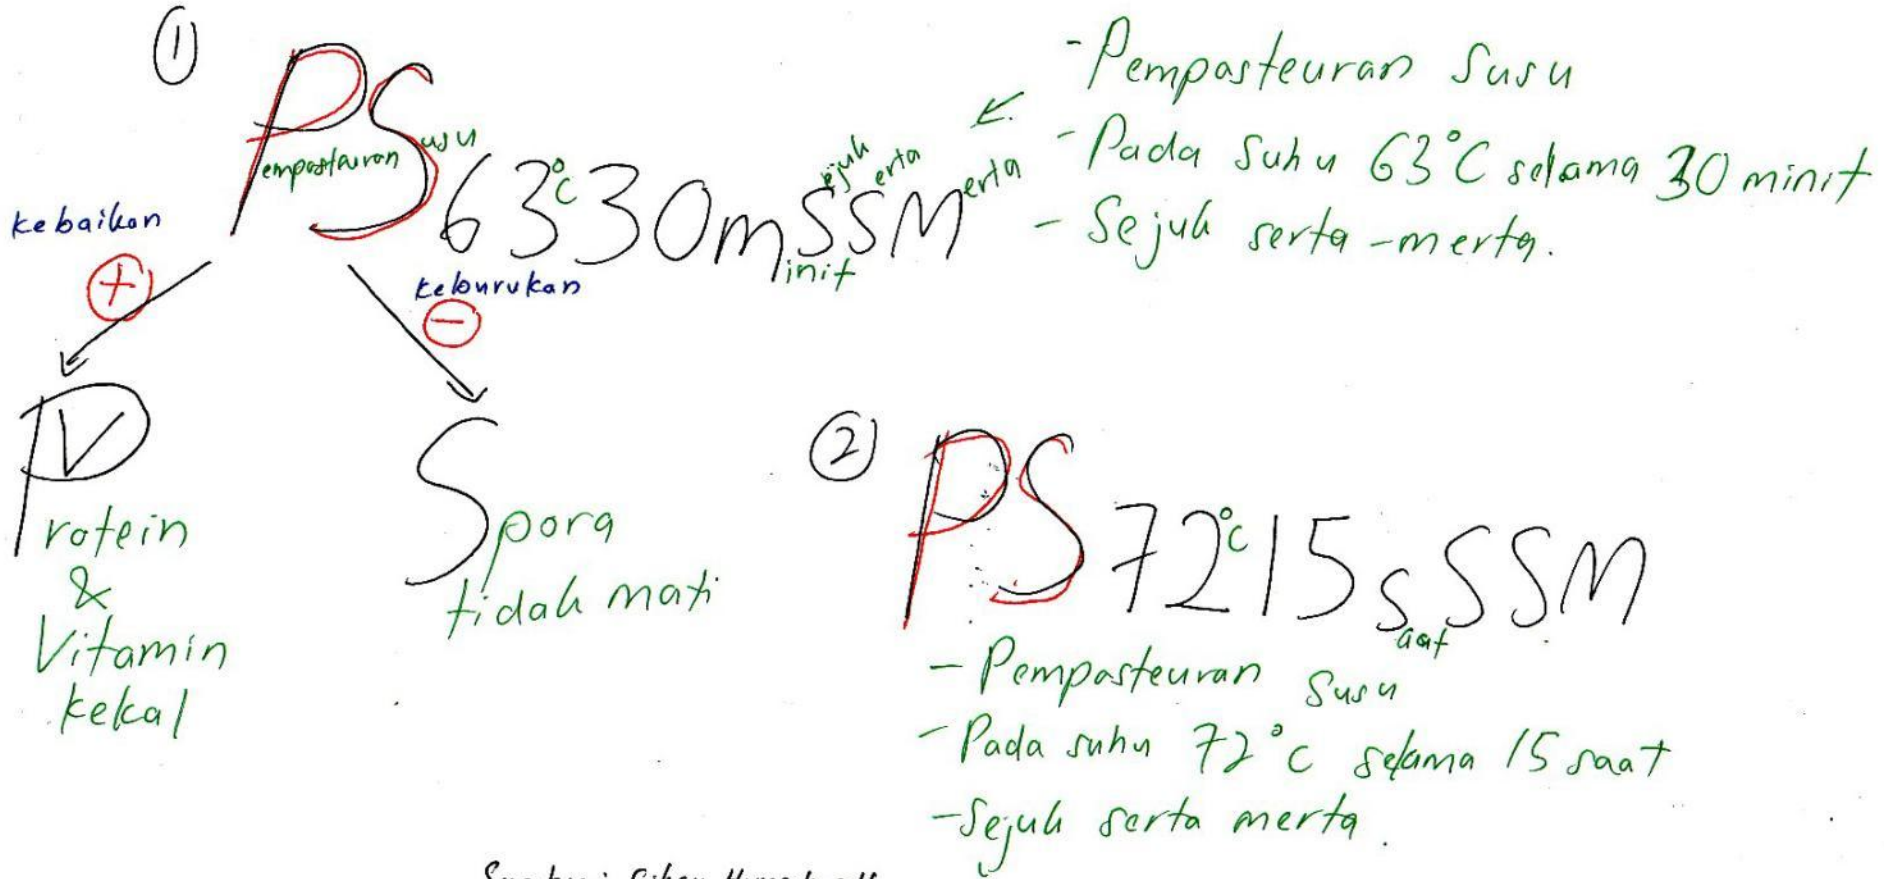 ①
PS 63°C 30mSSM
Pempasteuran Susu
minit
Sejuh Serta Merta
- Pempasteuran Susu
- Pada Suhu 63°C selama 30 minit
- Sejuh serta-merta.
kebaikan
+
keburukan
-
PV
Protein
&
Vitamin
kekal
Spora
tidah mati
②
PS 72°C 15sSSM
saat
- Pempasteuran Susu
- Pada suhu 72°C selama 15 saat
- Sejuh serta merta.